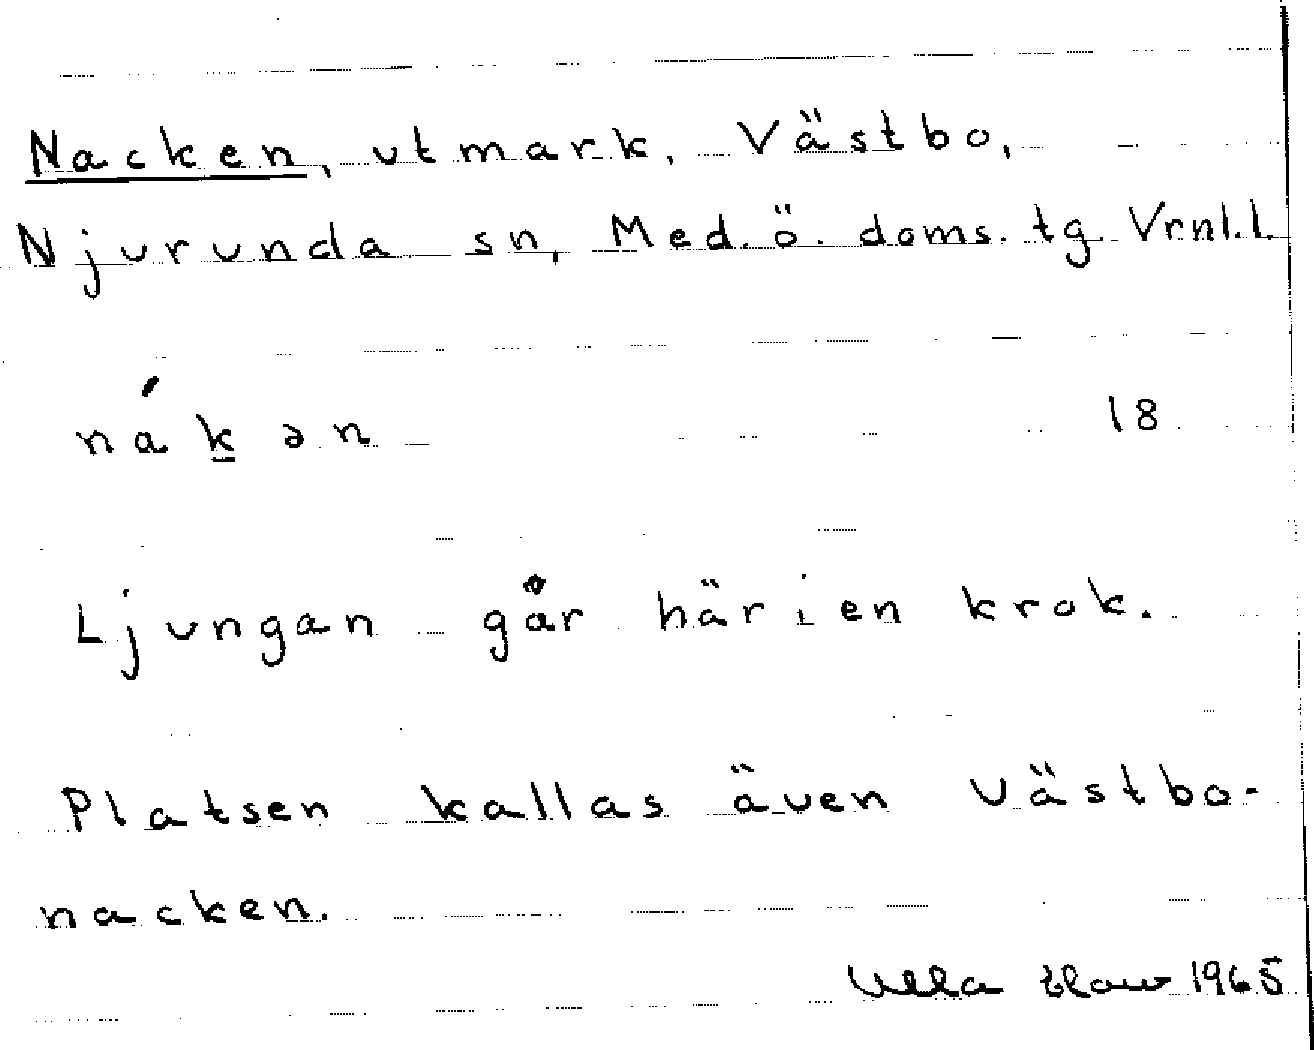 Nacken, utmark, Västbo,
Njurunda sn, Med. ö. doms. tg. Vrnl.l.
nák̲ən 18
Ljungan går här i en krok.
Platsen kallas även Västbo-
nacken.
Ulla 1965